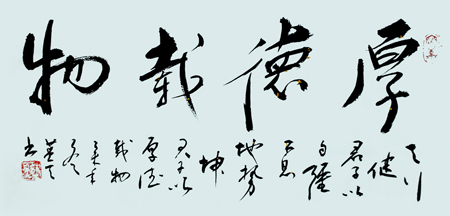 厚德載物
天行
健
君子以
自強
不息
地勢
坤
君子以
厚德
載物